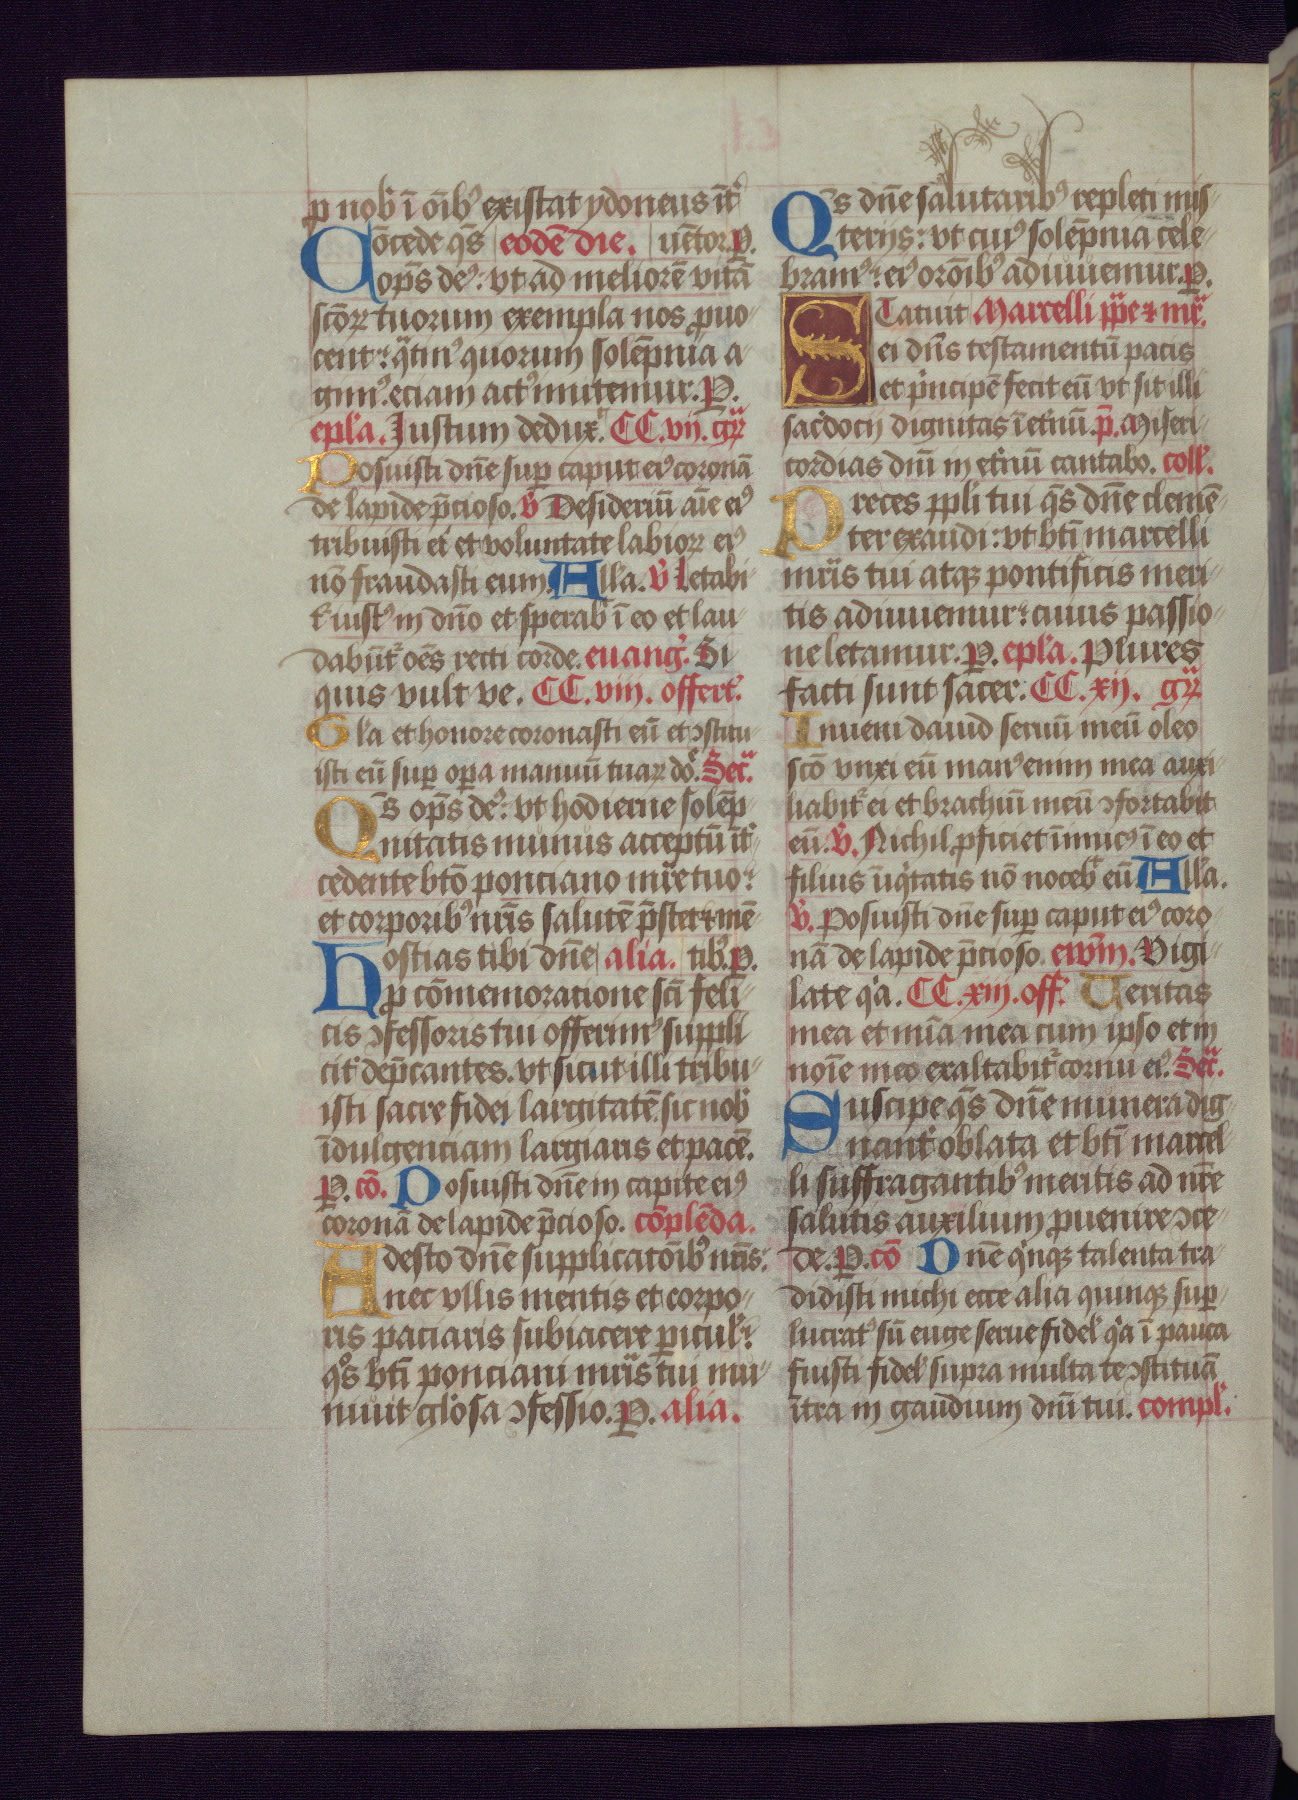 ꝑ nob̄ ī oīb⁹ existat ydoneus īt᷑
Cōcede q̄s eodē die. uētor. P.
op̄s de⁹: vt ad meliorē vitā
sc̄oꝝ tuorum exempla nos ꝓuo-
cent: q̄tin⁹ quorum solēpnia a-
gim⁹. eciam act⁹ imitemur. P.
ep̄la. Justum dedux. CC. vij. gͬ
Posuisti dn̄e suꝑ caput ei⁹ coronā
de lapide p̄cioso. v̄ Desideriū aīe ei⁹
tribuisti ei et voluntate labioꝝ ei⁹
nō fraudasti eum. Alla. v̄ Letabi-
t᷑ iust⁹ in dn̄o et sperab̄ ī eo et lau-
dabūt᷑ oēs recti corde. euang̛. Si
quis vult ve. CC. viij. offert̛.
Gl̄a et honore coronasti eū et ↄstitu-
isti eū suꝑ oꝑa manuū tuaꝝ do͛. Secͣ.
Qs̄ op̄s de⁹: vt hodierne solēp-
nitatis munus acceptū īt᷑-
cedente bt̄o ponciano mr̄e tuo:
et corporib⁹ nr̄is salutē p̄stet ⁊ mē-
Hostias tibi dn̄e alia. tib⁹. P.
ꝑ cōmemoratione sc̄i feli-
cis ↄfessoris tui offerim⁹ suppli-
cit᷑ dep̄cantes. vt sicut illi tribu-
isti sacre fidei largitatē. sic nob̄
īdulgenciam largiaris et pacē.
P. cō. Posuisti dn̄e in capite ei⁹
coronā de lapide p̄cioso. cōplēda.
Adesto dn̄e supplicatōib⁹ nr̄is:
nec vllis mentis et corpo-
ris paciaris subiacere ꝑicul̛:
qͦs bt̄i ponciani mr̄is tui mu-
niuit gl̄osa ↄfessio. P. alia.
Qs̄ dn̄e salutarib⁹ repleti mis-
terijs: vt cui⁹ solēpnia cele-
bram⁹: ei⁹ orōib⁹ adiuuemur. P.
Statuit Marcelli ꝑ̄pe ⁊ mr̄.
ei dn̄s testamentū pacis
et p̛ncipē fecit eū vt sit illi
sac̛docij dignitas ī et̛nū. p̄. Miseri-
cordias dn̄i in et̛nū cantabo. coll̛.
Preces ppl̛i tui q̄s dn̄e clemē-
ter exaudi: vt bt̄i marcelli
mr̄is tui atqꝫ pontificis meri-
tis adiuuemur: cuius passio-
ne letamur. P. ep̄la. Plures
facti sunt sacer. CC. xij. gͬ
Inueni dauid seruū meū oleo
sc̄o vnxi eū man⁹ enim mea auxi-
liabit᷑ ei et brachiū meū ↄfortabit
eū. v̄. Nichil ꝓficiet īimic⁹ ī eo et
filius īiq̛tatis nō noceb̛ eū Alla.
v̄. Posuisti dn̄e suꝑ caput ei⁹ coro-
nā de lapide p̄cioso. ewm̄. Vigi-
late q̛a. CC. xiij. off̛. Veritas
mea et mīa mea cum ipso et in
noīe meo exaltabit᷑ cornu ei⁹. Secͣ.
Suscipe q̄s dn̄e munera dig-
nant̛ oblata et bt̄i marcel-
li suffragantib⁹ meritis ad nr̄e
salutis auxilium ꝓuenire ↄce-
de. P. cō Dn̄e q̛nqꝫ talenta tra-
didisti michi ecce alia quinqꝫ suꝑ-
lucrat⁹ sū euge serue fidel̛ q̛a ī pauca
fuisti fidel̛ supra multa te ↄstituā
ītra in gaudium dn̄i tui. compl̛.